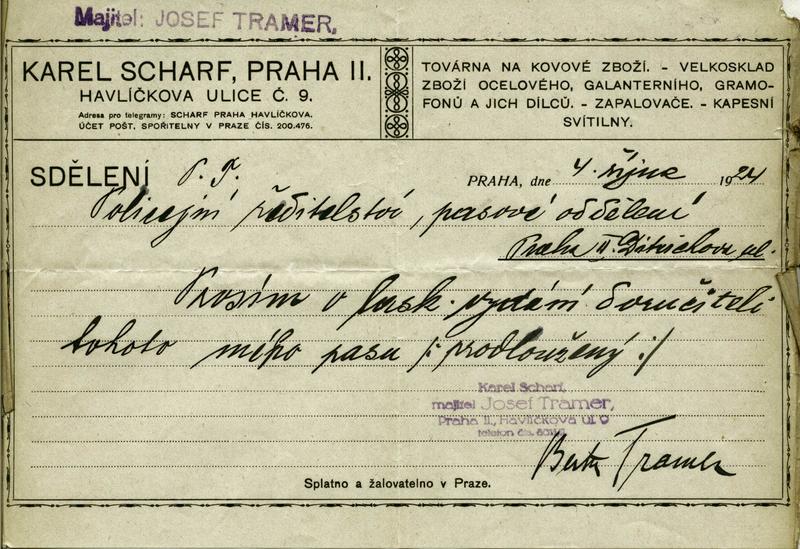 Majitel: JOSEF TRAMER,
KAREL SCHARF, PRAHA II.
HAVLÍČKOVA ULICE Č. 9.
Adresa pro telegramy: SCHARF PRAHA HAVLÍČKOVA.
ÚČET POŠT. SPOŘITELNY V PRAZE ČÍS. 200.476.
TOVÁRNA NA KOVOVÉ ZBOŽÍ. - VELKOSKLAD
ZBOŽÍ OCELOVÉHO, GALANTERNÍHO, GRAMO-
FONŮ A JICH DÍLCŮ. - ZAPALOVAČE. - KAPESNÍ
SVÍTILNY.
SDĚLENÍ P. T.
PRAHA, dne 4. října 1924
Policejní ředitelství, pasové oddělení
Praha II. Ditrichova ul.
Prosím o lask. vydání doručiteli
tohoto mého pasu /: prodloužený :/
Karel Scharf,
majitel Josef Tramer,
Praha II., Havlíčkova ul. 9
telefon čís.
Berta Tramer
Splatno a žalovatelno v Praze.